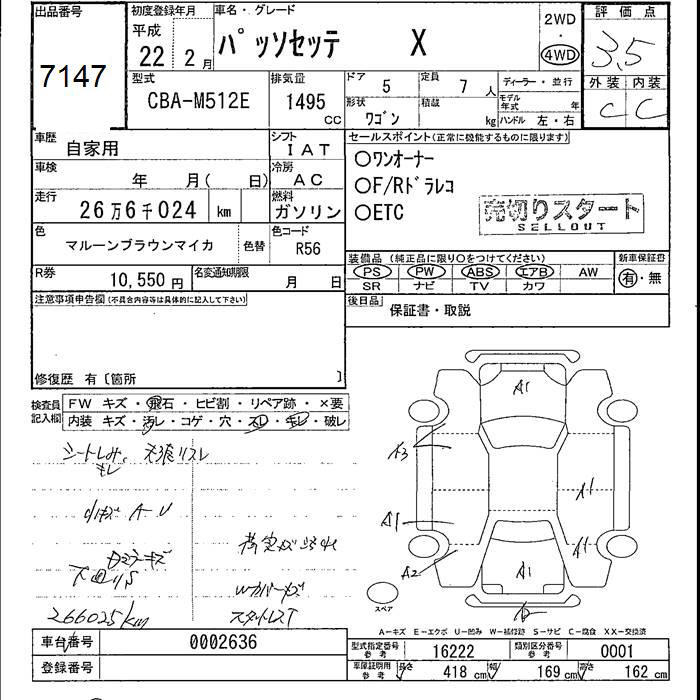 出品番号
7147
初度登録年月
平成
22年 2月
車名・グレード
パッソセッテ X
2WD
・
4WD
評価点
3.5
外装 内装
C C
型式
CBA-M512E
排気量
1495
cc
ドア 5
定員 7人
形状 ワゴン
積載 kg
ディーラー・並行
モデル年式 年
ハンドル 左・右
車歴 自家用
シフト IAT
車検 年 月( 日)
冷房 AC
走行 26万6千024 km
燃料 ガソリン
色 マルーンブラウンマイカ
色替
色コード R56
R券 10,550円
名変通知期限 月 日
セールスポイント(正常に機能するものに限ります)
○ワンオーナー
○F/Rドラレコ
○ETC
売切りスタート
SELLOUT
装備品 (純正品に限り○をつけてください)
新車保証書
PS PW ABS エアB AW
SR ナビ TV カワ
有・無
後日品 保証書・取説
注意事項申告欄(不具合内容等は具体的に記入して下さい)
修復歴 有〔箇所 〕
検査員記入欄
FW キズ・飛石・ヒビ割・リペア跡・×要
内装 キズ・汚レ・コゲ・穴・スレ・モレ・破レ
シートしみ、天張リスレ
モレ
小キズ A-U
Dミラーキズ
下回りS
Wカバーキズ
266025km
スタットレスT
A1
A3
A1
A1
A2
A1
A1
スペア
A-キズ E-エクボ U-凹み W-補修跡 S-サビ C-腐食 XX-交換済
車台番号 0002636
登録番号
型式指定番号 参考 16222
類別区分番号 参考 0001
車庫証明用 参考 長さ 418 cm 幅 169 cm 高さ 162 cm